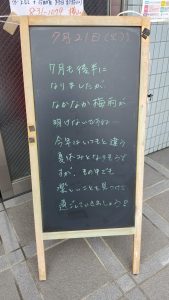 7月21日(火)
7月も後半に
なりましたが
なかなか梅雨が
明けないですね…
今年はいつもと違う
夏休みとなりそうで
すが、その中でも
楽しいことを見つけて
過ごしていきましょう!